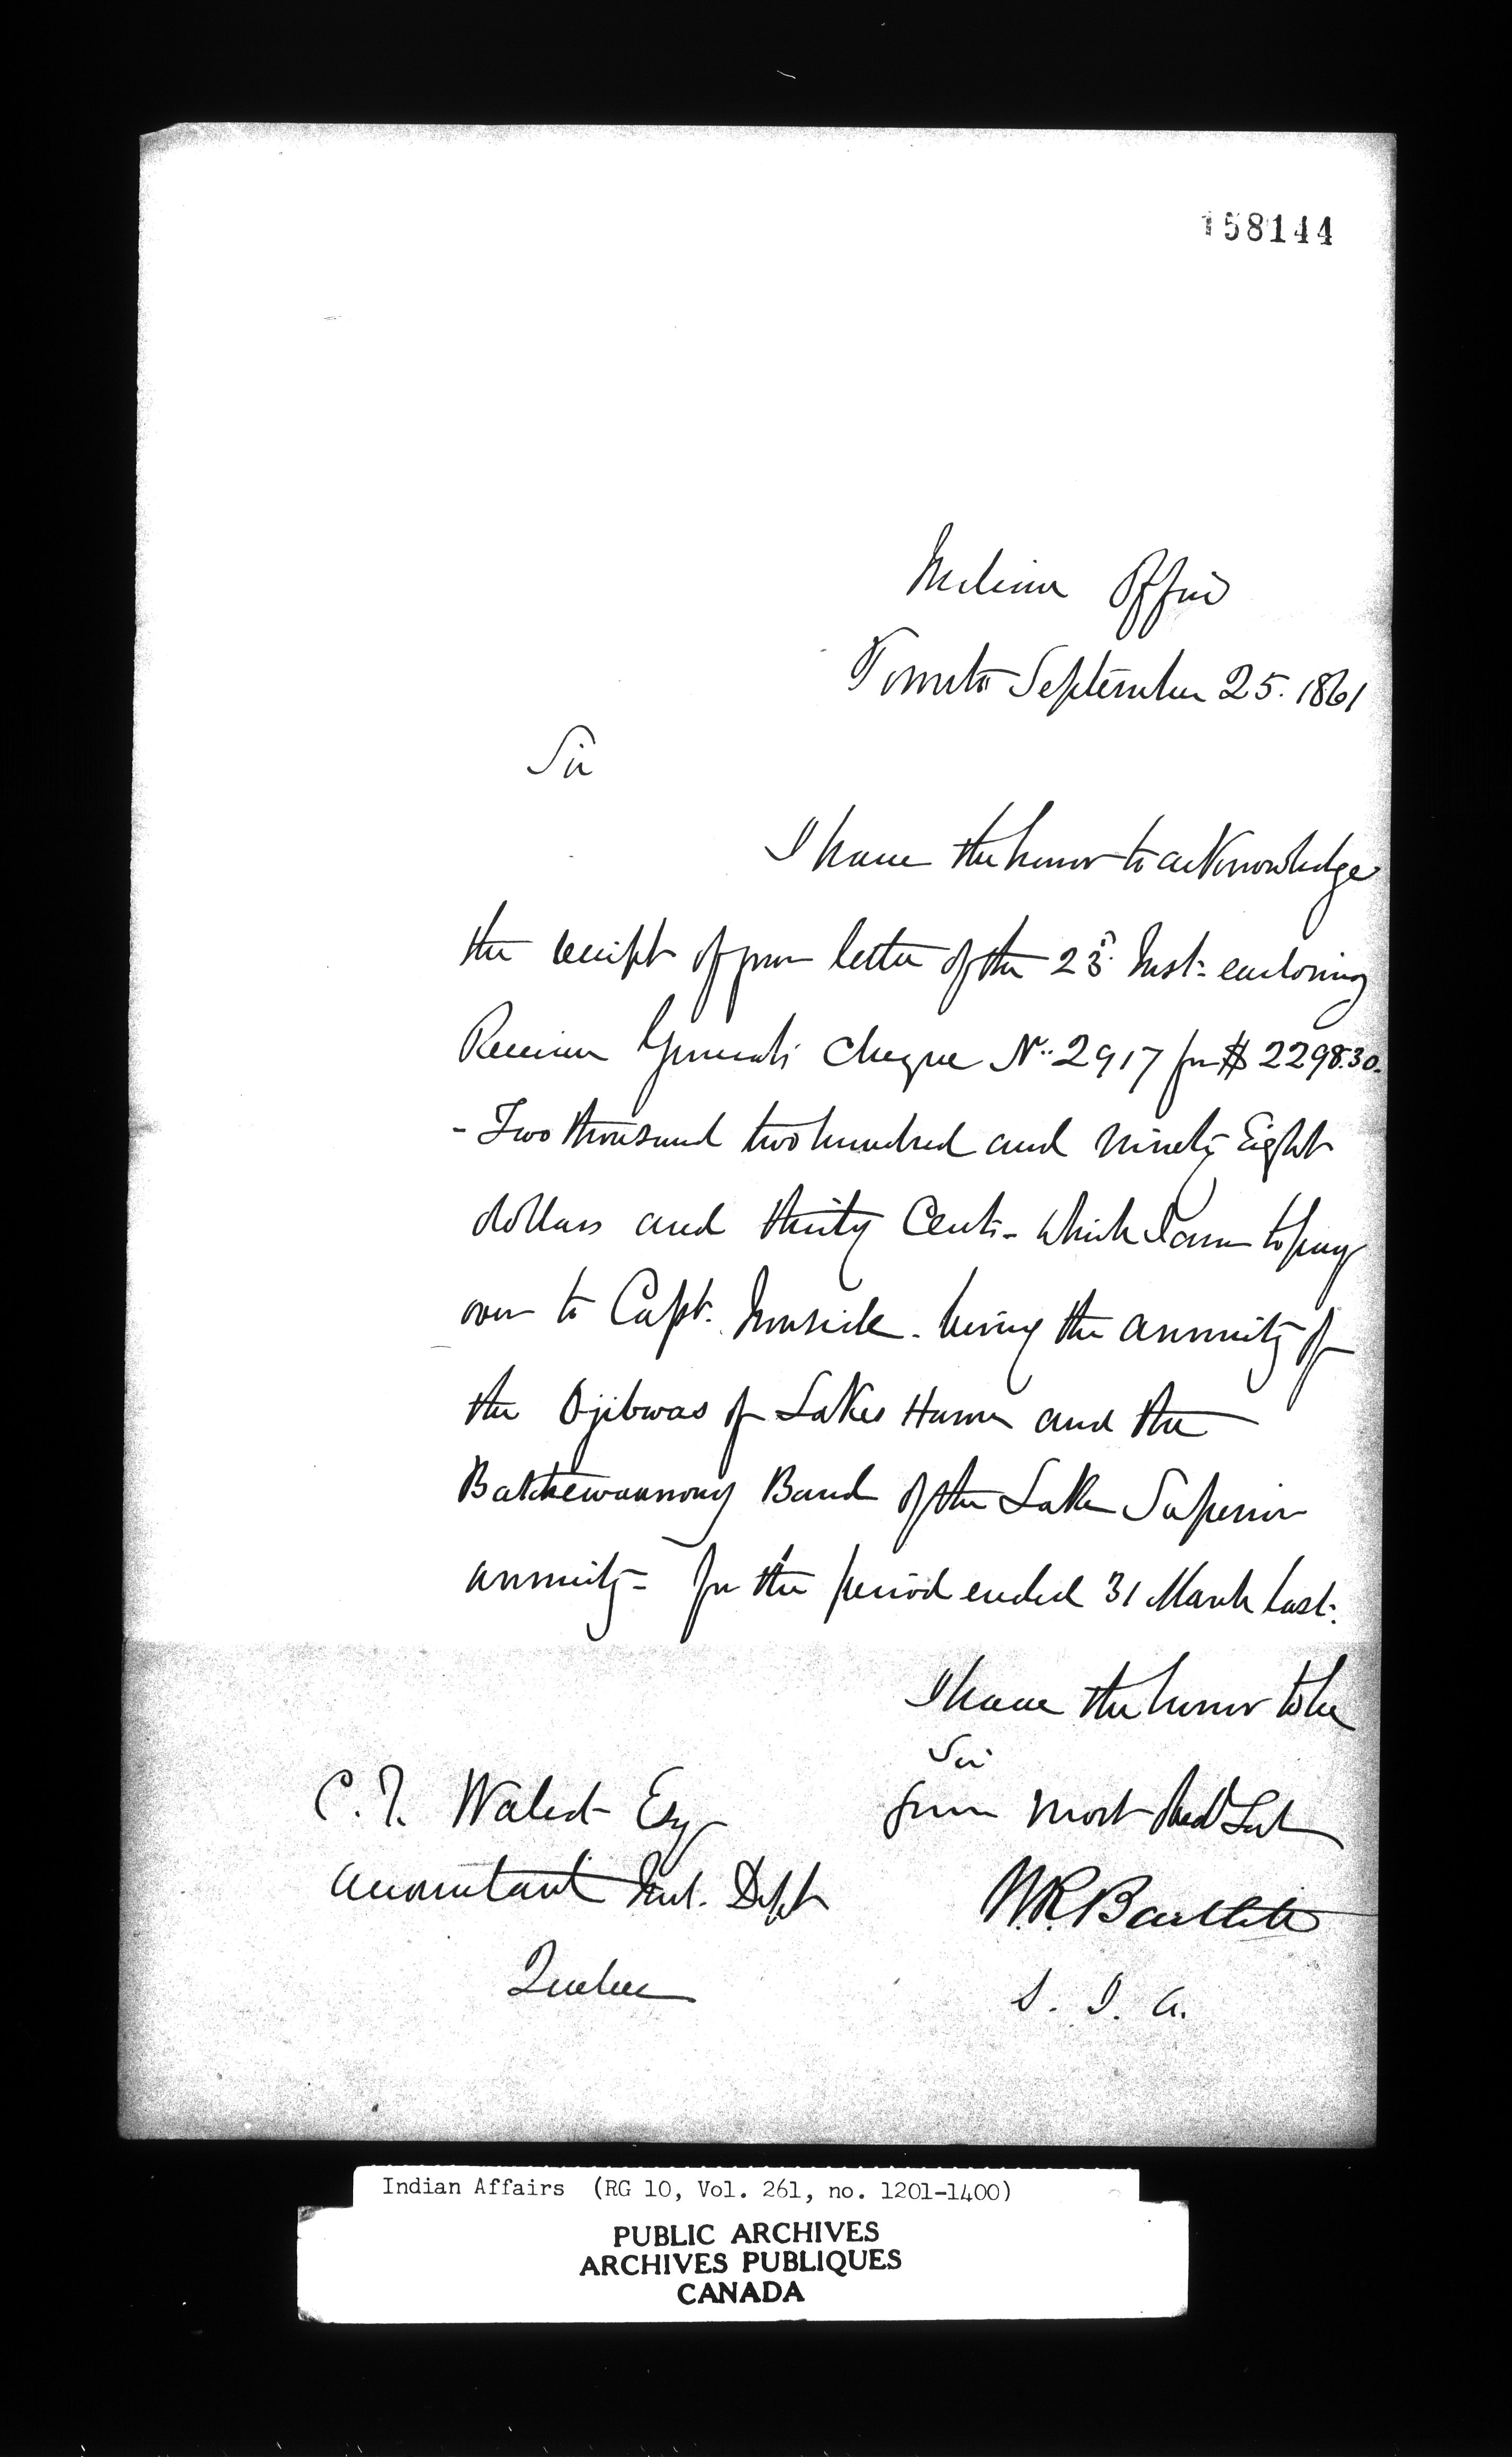 158144
Indian Office
Toronto September 25. 1861
Sir
I have the honor to acknowledge
the receipt of your letter of the 23d Inst: enclosing
Receiver Generals Cheque No. 2917 for $2298.30.
- Two thousand two hundred and ninety Eight
dollars and thirty Cents - which I am to pay
over to Capt. Ironside - being the annuity of
the Ojibwas of Lakes Huron and the
Batchewaunony Band of the Lake Superior
annuity - for the period ended 31 March last.
I have the honor to be
Sir
C. T. Walcot Esq
Your most Obed Sert
Accountant Ind. Dept
W R Bartlett
Quebec
S. I. A.
Indian Affairs (RG 10, Vol. 261, no. 1201-1400)
PUBLIC ARCHIVES
ARCHIVES PUBLIQUES
CANADA